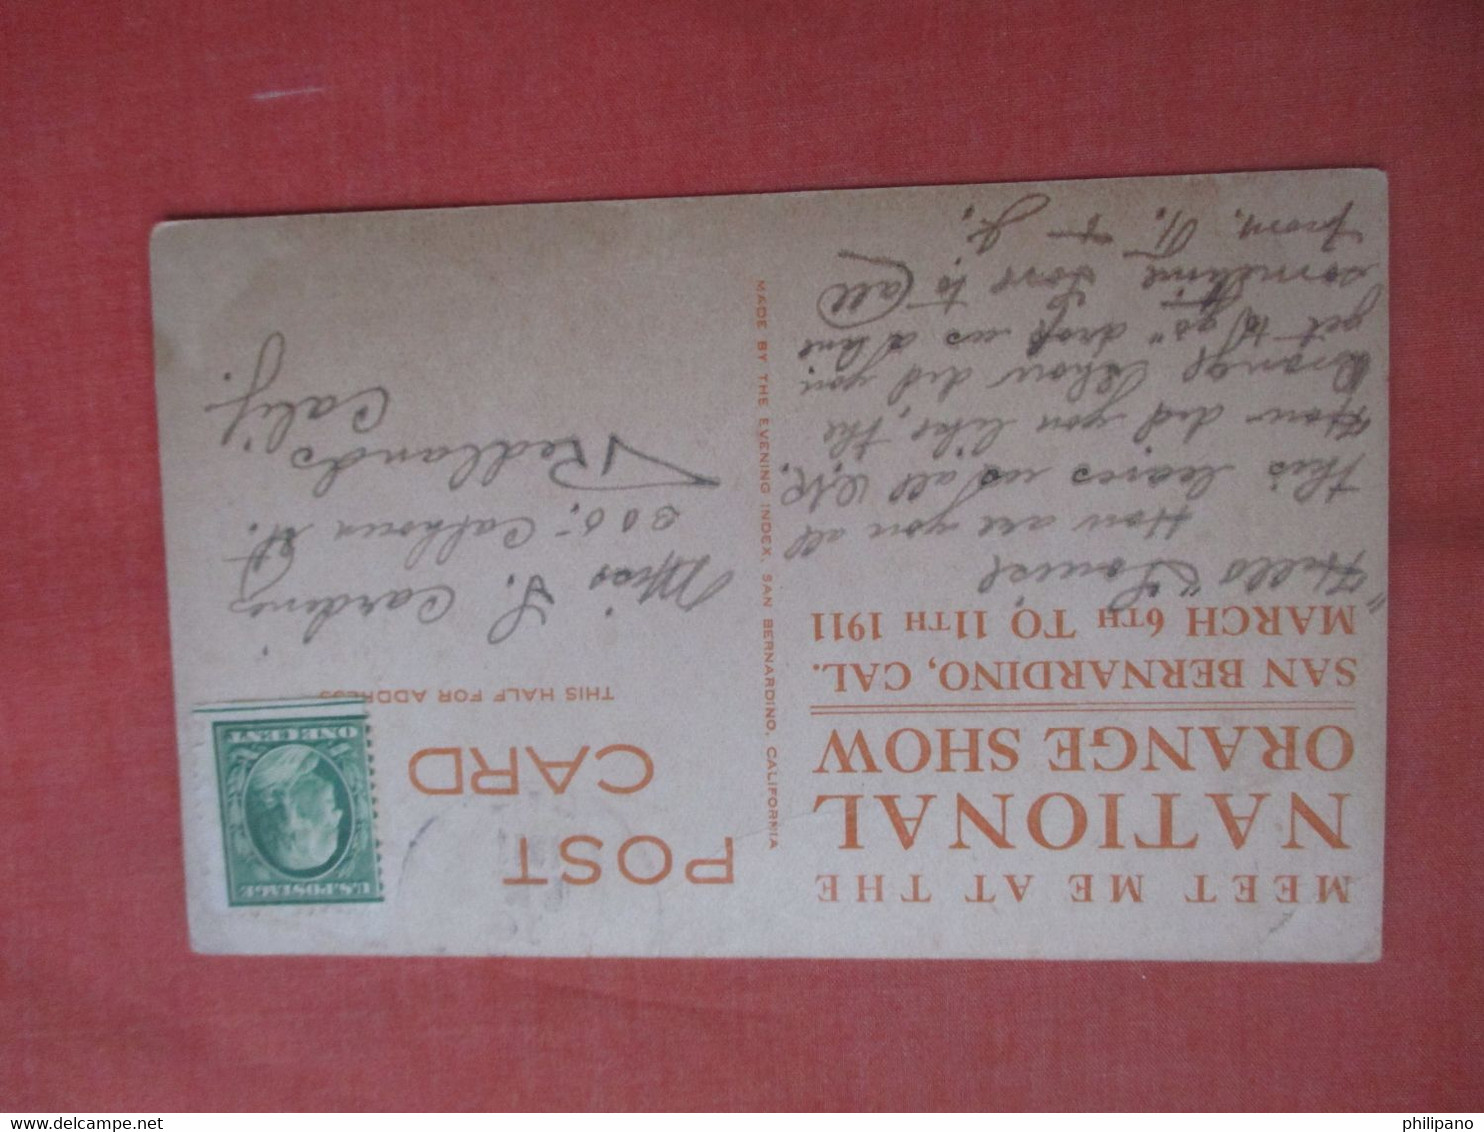 MEET ME AT THE
NATIONAL
ORANGE SHOW
SAN BERNARDINO, CAL.
MARCH 6TH TO 11TH 1911
"Hello" Louise!
How are you all
this leaves us all O.K.
How did you like, the
Orange Show did you
get to "go" drop us a line
sometime. Love to (all)
from. N. + J.
MADE BY THE EVENING INDEX, SAN BERNARDINO, CALIFORNIA
POST
CARD
THIS HALF FOR ADDRESS
U.S. POSTAGE
ONE CENT
Miss L. Cardenis
300 - Calhoun St.
Redlands
Calif.
www.delcampe.net
philipano